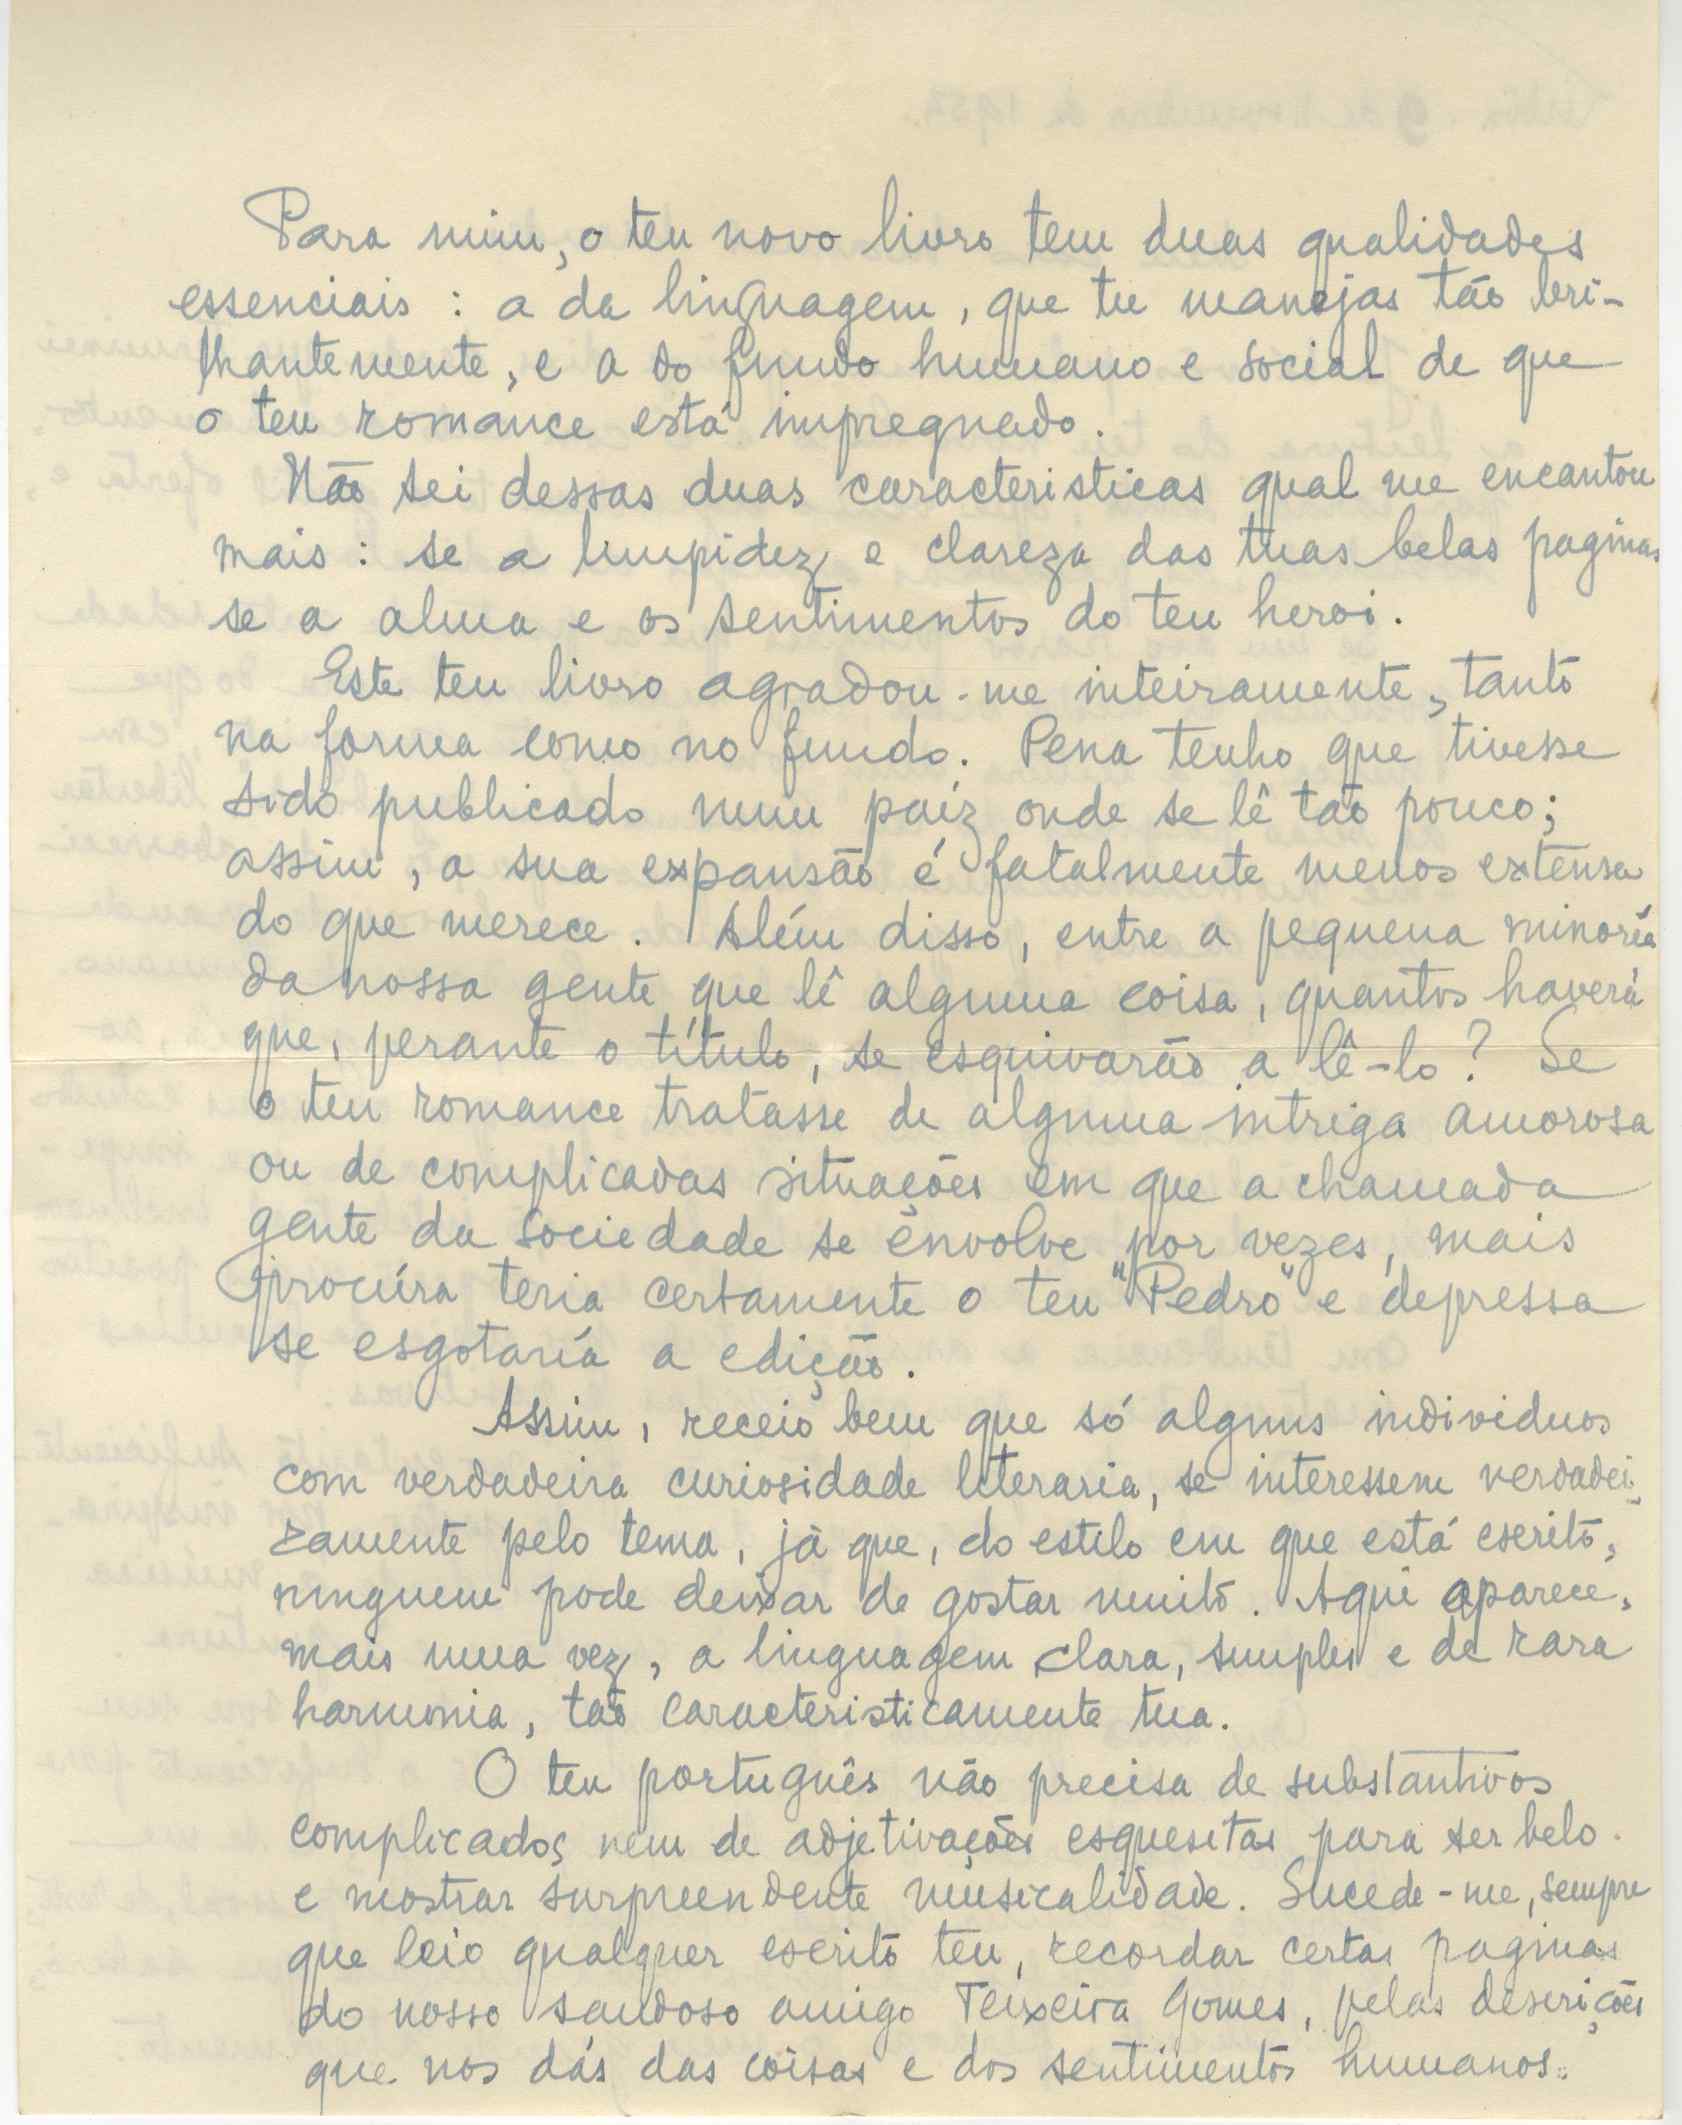 Para mim, o teu novo livro tem duas qualidades
essenciais : a da linguagem, que tu manejas tão bri-
lhantemente, e a do fundo humano e social de que
o teu romance está impregnado.
Não sei dessas duas caracteristicas qual me encantou
mais : se a limpidez e clareza das tuas belas paginas
se a alma e os sentimentos do teu heroi.
Este teu livro agradou-me inteiramente, tanto
na forma como no fundo. Pena tenho que tivesse
sido publicado num paíz onde se lê tão pouco;
assim, a sua expansão é fatalmente menos extensa
do que merece. Além disso, entre a pequena minoria
da nossa gente que lê alguma coisa, quantos haverá
que, perante o título, se esquivarão a lê-lo? Se
o teu romance tratasse de alguma intriga amorosa
ou de complicadas situações em que a chamada
gente da sociedade se envolve por vezes, mais
procúra teria certamente o teu "Pedro" e depressa
se esgotaría a edição.
Assim, receio bem que só alguns individuos
com verdadeira curiosidade literaria, se interessem verdadei-
ramente pelo tema, já que, do estilo em que está escrito,
ninguem pode deixar de gostar muito. Aqui aparece,
mais uma vez, a linguagem clara, simples e de rara
harmonia, tão caracteristicamente tua.
O teu português não precisa de substantivos
complicados nem de adjetivações esquesitas para ser belo
e mostrar surpreendente musicalidade. Sucede-me, sempre
que leio qualquer escrito teu, recordar certas paginas
do nosso saudoso amigo Teixeira Gomes, pelas descrições
que nos dás das coisas e dos sentimentos humanos.